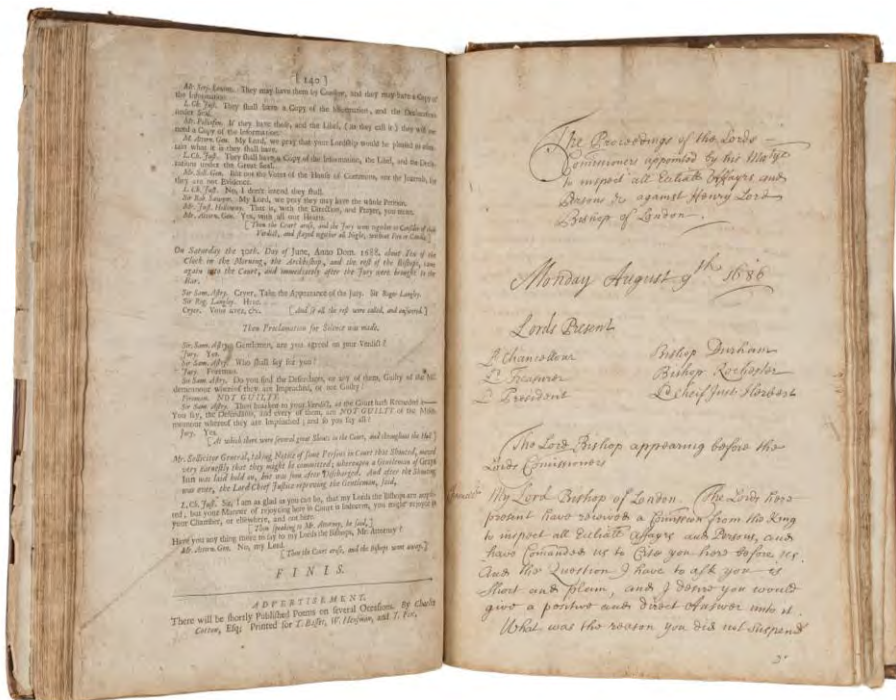 [ 140 ]
Mr. Serj. Levinz. They may have them by Consent, and they may have a Copy of
the Information.
L. Ch. Just. They shall have a Copy of the Information, and the Declarations
under Seal.
Mr. Pollexfen. If they have those, and the Libel, (as they call it) they will not
need a Copy of the Information.
M. Attorn. Gen. My Lord, we pray that your Lordship would be pleased to
what it is they shall have.
L. Ch. Just. They shall have a Copy of the Information, the Libel, and the Decla-
rations under the Great Seal.
Mr. Soll. Gen. But not the Votes of the House of Commons, nor the Journals, for
they are not Evidence.
L. Ch. Just. No, I don't intend they shall.
Sir Rob. Sawyer. My Lord, we pray they may have the whole Petition.
Mr. Just. Holloway. That is, with the Direction, and Prayer, you mean.
Mr. Attorn. Gen. Yes, with all our Hearts.
[Then the Court arose, and the Jury went together to Consider of their
Verdict, and stayed together all Night, without Fire or Candle.]
On Saturday the 30th. Day of June, Anno Dom. 1688. about Ten of the
Clock in the Morning, the Archbishop, and the rest of the Bishops, came
again into the Court, and immediately after the Jury were brought to the
Bar.
Sir Sam. Astry. Cryer, Take the Appearance of the Jury. Sir Roger Langley.
Sir Rog. Langley. Here.
Cryer. Vous avez, &c. [And so all the rest were called, and answered.]
Then Proclamation for Silence was made.
Sir Sam. Astry. Gentlemen, are you agreed on your Verdict?
Jury. Yes.
Sir Sam. Astry. Who shall say for you?
Jury. Foreman.
Sir Sam. Astry. Do you find the Defendants, or any of them, Guilty of the Mis-
demeanour whereof they are Impeached, or not Guilty?
Foreman. NOT GUILTY.
Sir Sam. Astry. Then hearken to your Verdict, as the Court hath Recorded it
You say, the Defendants, and every of them, are NOT GUILTY of the Misde-
meanour whereof they are Impeached; and so you say all?
Jury. Yes.
[At which there were several great Shouts in the Court, and throughout the Hall.]
Mr. Sollicitor General, taking Notice of some Persons in Court that Shouted, moved
very earnestly that they might be committed; whereupon a Gentleman of Grays
Inn was laid hold on, but was soon after Discharged. And after the Shouting
was over, the Lord Chief Justice reproving the Gentleman, said,
L. Ch. Just. No, I am as glad as you can be, that my Lords the Bishops are acquit-
ted, but your Manner of rejoycing here in Court is Indecent, you might rejoyce in
your Chamber, or elsewhere, and not here.
[Then speaking to Mr. Attorney, he said,]
Have you any thing more to say to my Lords the Bishops, Mr. Attorney?
Mr. Attorn. Gen. No, my Lord.
[Then the Court arose, and the Bishops went away.]
FINIS.
ADVERTISEMENT.
There will be shortly Published Poems on several Occasions. By Charles
Cotton, Esq; Printed for T. Basset, W. Hensman, and T. Fox.
The Proceedings of the Lords
Comissioners appointed by his Matye
to inspect all Eccliastl Affayrs and
Persons &c against Henry Lord
Bishop of London.
Monday August 9th 1686
Lords Present
Ld Chancellour Bishop Durham
Ld Treasurer Bishop Rochester
Ld President Ld Cheif Just Herbert
The Lord Bishop appearing before the
Lords Comissioners
My Lord Bishop of London. The Lords here
present have received a Comission from the King
to inspect all Eccliastl affayrs and Persons, and
have Comanded us to Cite you here before us.
And the Question I have to ask you is
short and plain, and I desire you would
give a positive and direct Answer unto it.
What was the reason you did not suspend